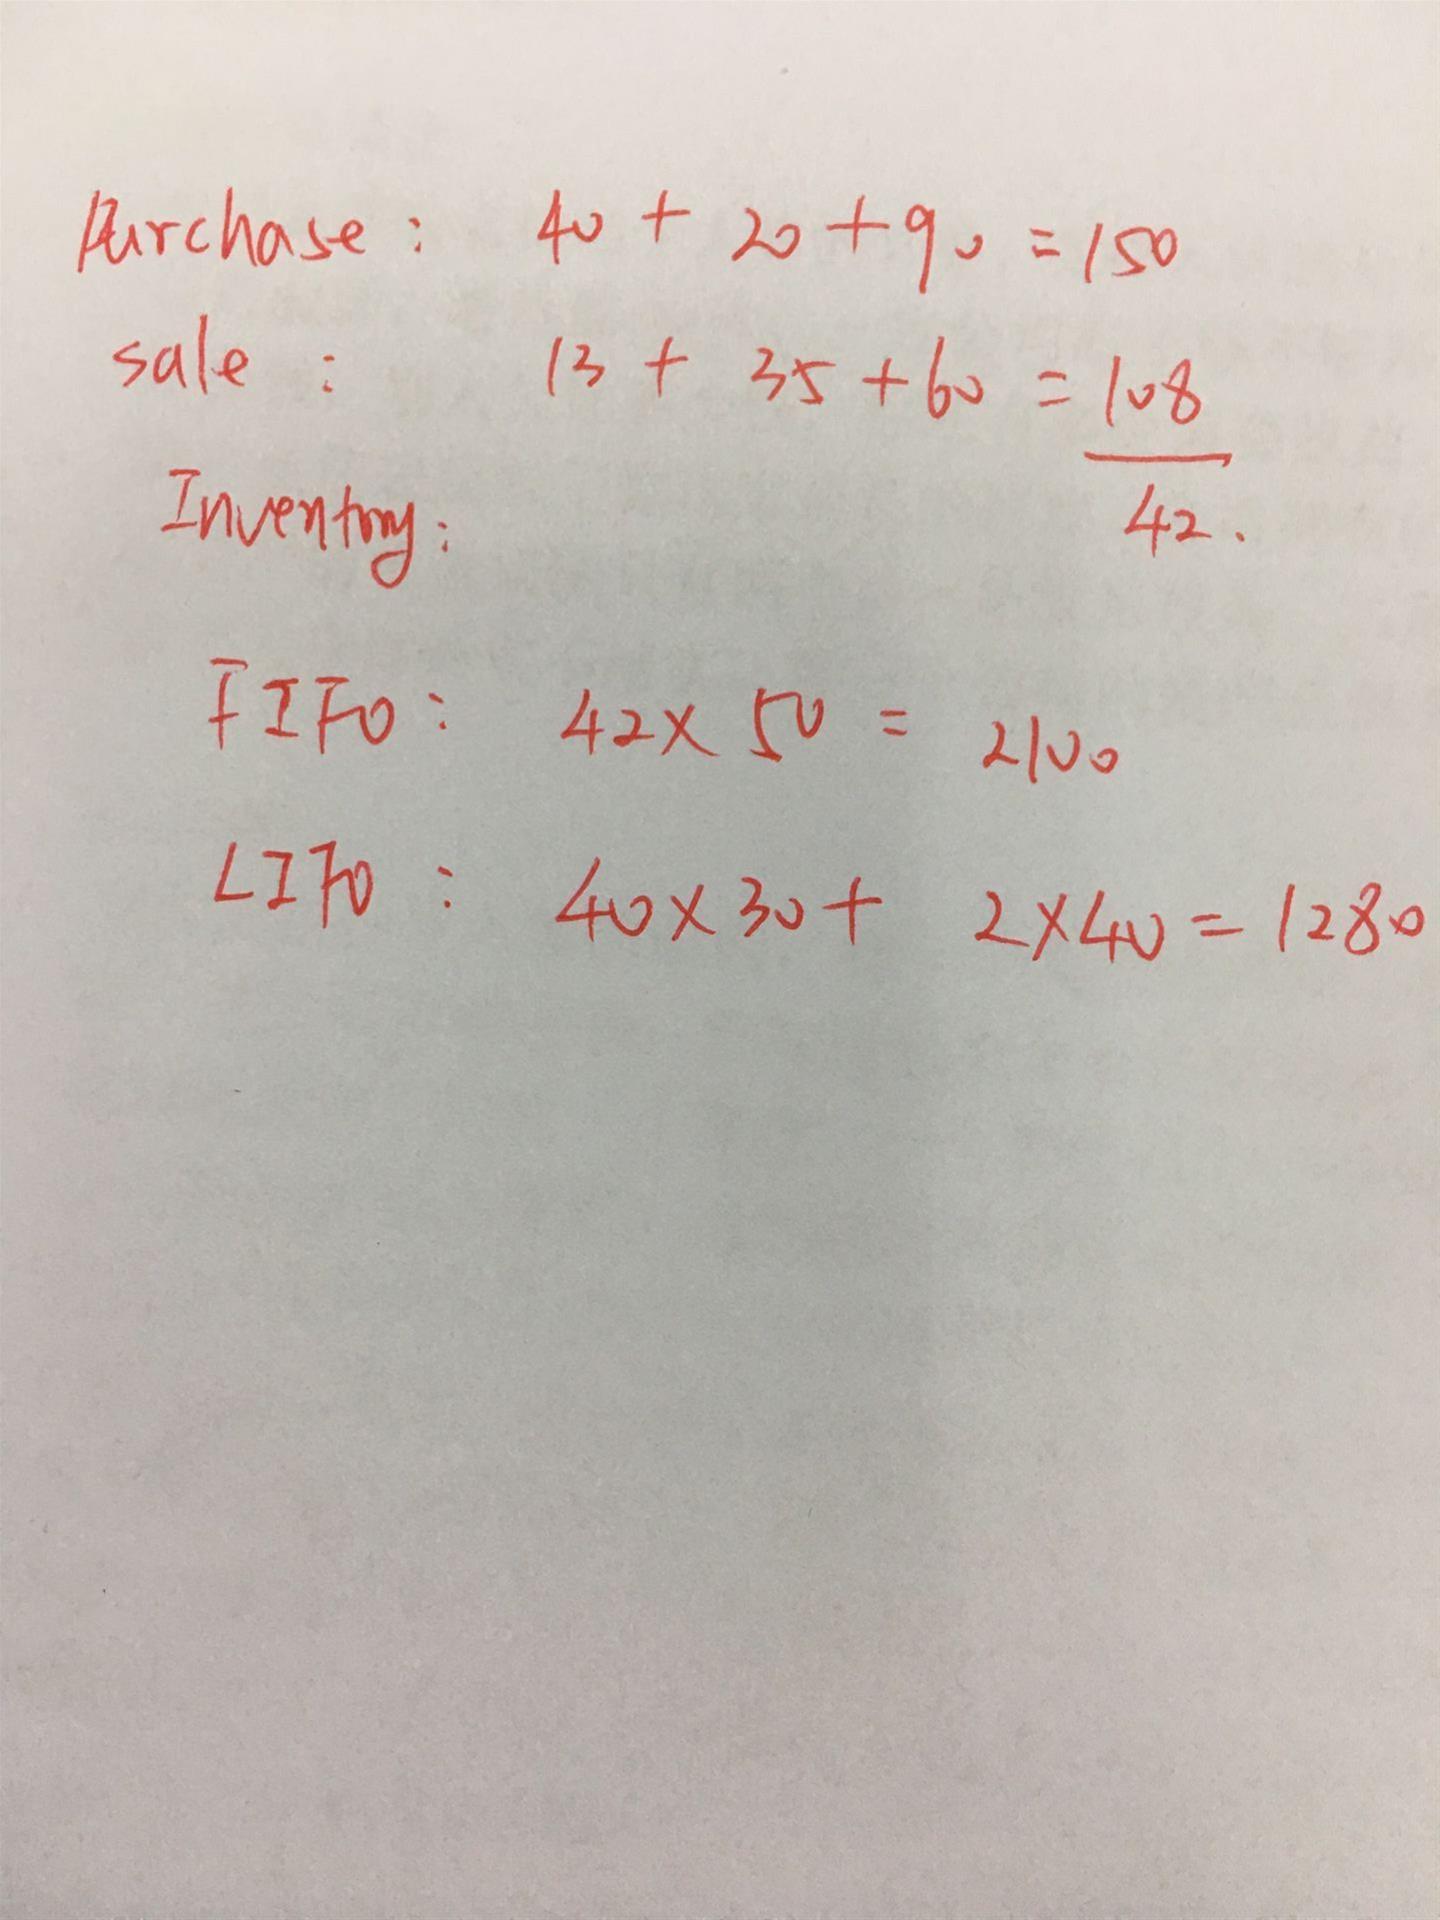 Purchase: 40 + 20 + 90 = 150
sale : 13 + 35 + 60 = 108
Inventory: 42.
FIFO: 42 x 50 = 2100
LIFO: 40 x 30 + 2 x 40 = 1280